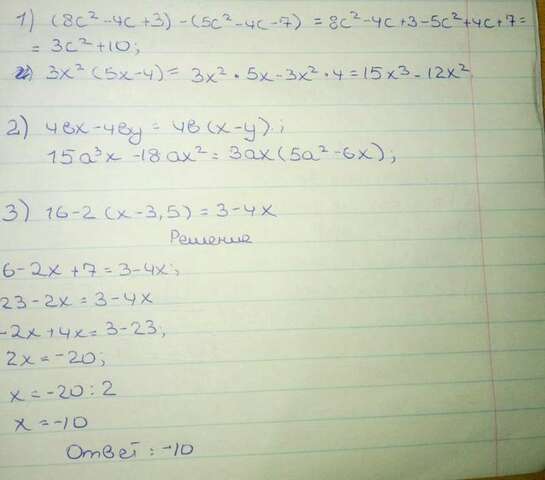 1) (8c² -4c +3) -(5c² -4c -7) = 8c² -4c +3 -5c² +4c +7 =
= 3c² +10;
2) 3x² (5x -4) = 3x² • 5x - 3x² • 4 = 15x³ - 12x²
2) 4вх -4ву = 4в (x -y).;
15a³x -18ax² = 3ax (5a² -6x);
3) 16 -2 (x -3,5) = 3 -4x
Решение
6 -2x +7 = 3 -4x;
23 -2x = 3 -4x
-2x +4x = 3 -23;
2x = -20;
x = -20 : 2
x = -10
Ответ : -10